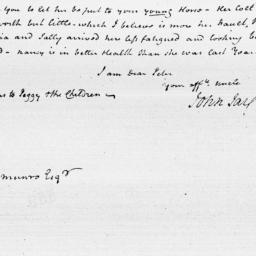 You to let her be put to your young Horse – Her Colt
worth but little – which I believe is more her fault,
ia and Sally arrived here less fatigued and looking be
d – nancy is in better Health than she was last Year
I am Dear Peter
your aff.te uncle
John Jay
to Peggy & the Children
munro Esq.r